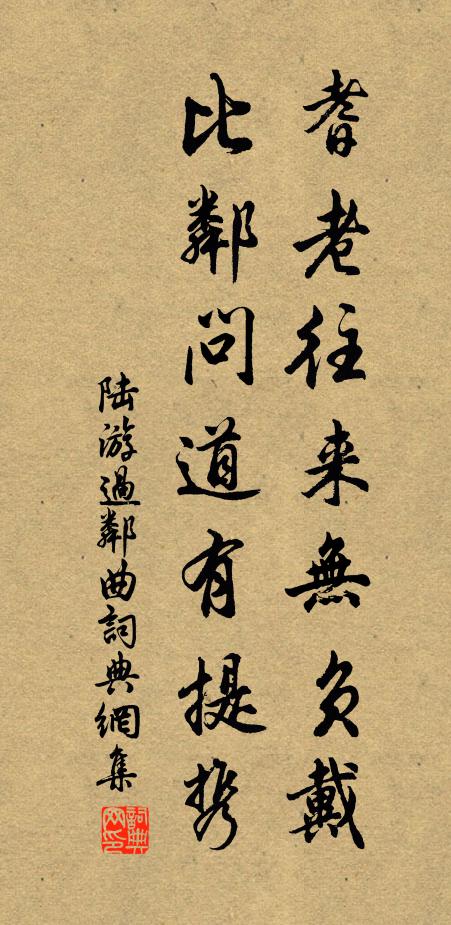 耆老往来無負戴
比鄰問道有提携
陆游過鄰曲詞典網集
詞典
网印